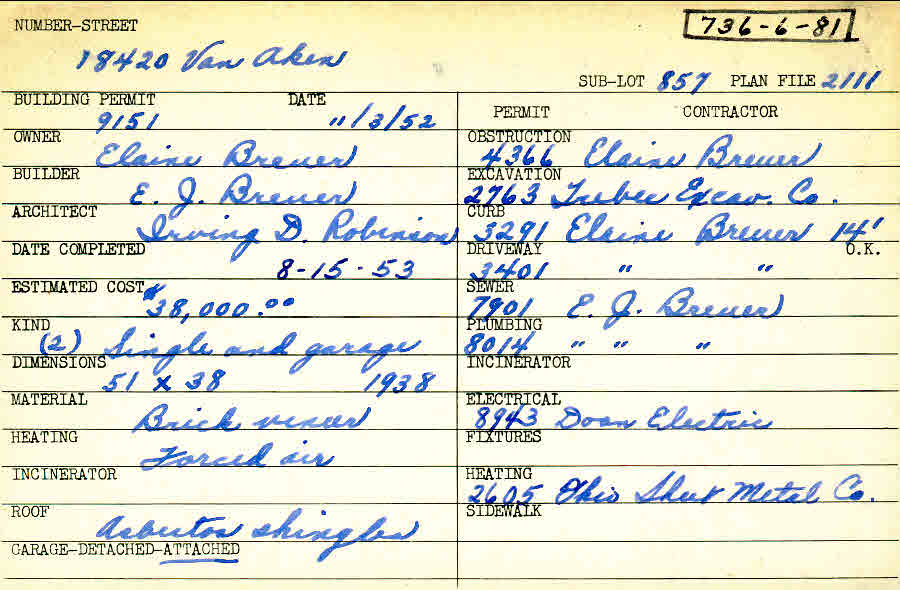 NUMBER-STREET
736-6-81
18420 Van Aken
SUB-LOT 857 PLAN FILE 2111
BUILDING PERMIT DATE
9151 11/3/52
OWNER
Elaine Brewer
BUILDER
E. J. Brewer
ARCHITECT
Irving D. Robinson
DATE COMPLETED
8-15-53
ESTIMATED COST
$38,000.00
KIND
(2) Single and garage
DIMENSIONS
51 x 38 1938
MATERIAL
Brick veneer
HEATING
Forced air
INCINERATOR
ROOF
Asbestos shingles
GARAGE-DETACHED-ATTACHED
PERMIT CONTRACTOR
OBSTRUCTION
4366 Elaine Brewer
EXCAVATION
2763 Excav. Co.
CURB
3291 Elaine Brewer 14'
DRIVEWAY O.K.
3401 " "
SEWER
7901 E. J. Brewer
PLUMBING
8014 " " "
INCINERATOR
ELECTRICAL
8943 Doan Electric
FIXTURES
HEATING
2605 Ohio Sheet Metal Co.
SIDEWALK